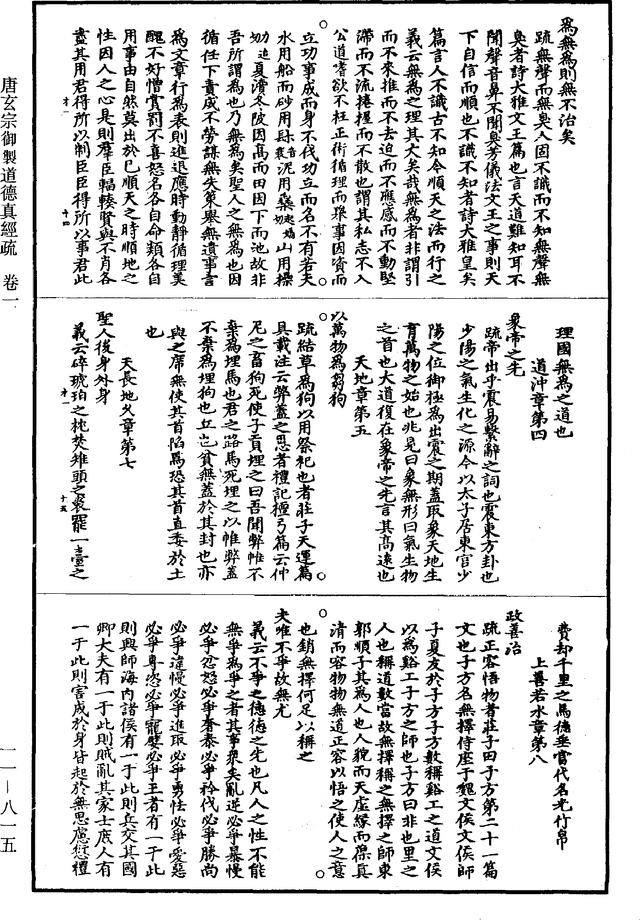 為無為則無不治矣
疏無聲而無臭人固不識而不知無聲無
臭者詩大雅文王篇也言天道難知耳不
聞聲音鼻不聞臭芳儀法文王之事則天
下自信而順也不識不知者詩大雅皇矣
篇言人不識古不知今順天之法而行之
義云無為之理其大矣哉無為者非謂引
而不來推而不去迫而不應感而不動堅
滯而不流捲握而不散也謂其私志不入
公道嗜欲不枉正術循理而舉事因資而
立功事成而身不伐功立而名不有若夫
水用船而砂用𨇨泥用輴山用樏
夏瀆冬陂因高而田因下而池故非
吾所謂為也乃無為矣聖人之無為也因
循任下責成不勞謀無失策舉無遺事言
為文章行為表則進退應時動靜循理美
醜不好憎賞罰不喜怒名各自命類各自
用事由自然莫出於已順天之時順地之
性因人之心是則羣臣輻輳賢與不肖各
盡其用君得所以制臣臣得所以事君此
理國無為之道也
道沖章第四
象帝之先
疏帝出乎震易繫辭之詞也震東方卦也
少陽之氣生化之源今以太子居東宮少
陽之位御極為出震之期蓋取象天地生
育萬物之始也兆見曰象無形曰氣生物
之首也大道復在象帝之先言其高遠也
天地章第五
以萬物為芻狗
疏結草為狗以用祭祀也者莊子天運篇
具載注云弊蓋之恩者禮記檀弓篇云仲
尼之畜狗死使子貢埋之曰吾聞弊帷不
棄為埋馬也君之路馬死埋之以帷弊蓋
不棄為埋狗也丘也貧無蓋於其封也亦
與之席無使其首陷焉恐其首直委於土
也
天長地久章第七
聖人後身外身
義云碎琥珀之枕焚雉頭之裘罷一臺之
費却千里之馬德垂當代名光竹帛
上善若水章第八
政善治
疏正容悟物者莊子田子方第二十一篇
文也子方名無擇侍座于魏文侯文侯師
子夏友於子方子方數稱谿工之道文侯
以為谿工子方之師也子方曰非也里之
人也稱道數當故無擇稱之無擇之師東
郭順子其為人也人貌而天虛緣而葆真
清而容物物無道正容以悟之使人之意
也銷無擇何足以稱之
夫唯不爭故無尤
義云不爭之德德之先也凡人之性不能
無爭為爭之者其事衆矣亂逆必爭暴慢
必爭忿怒必爭奢泰必爭矜伐必爭勝尚
必爭違慢必爭進取必爭勇怯必爭愛惡
必爭專恣必爭寵嬖必爭王者有一于此
則興師海內諸侯有一于此則兵交其國
卿大夫有一于此則賊亂其家士庶人有
一于此則害成於身皆起於無思慮愆禮
唐玄宗御製道德真經疏 卷一
一一—八一五